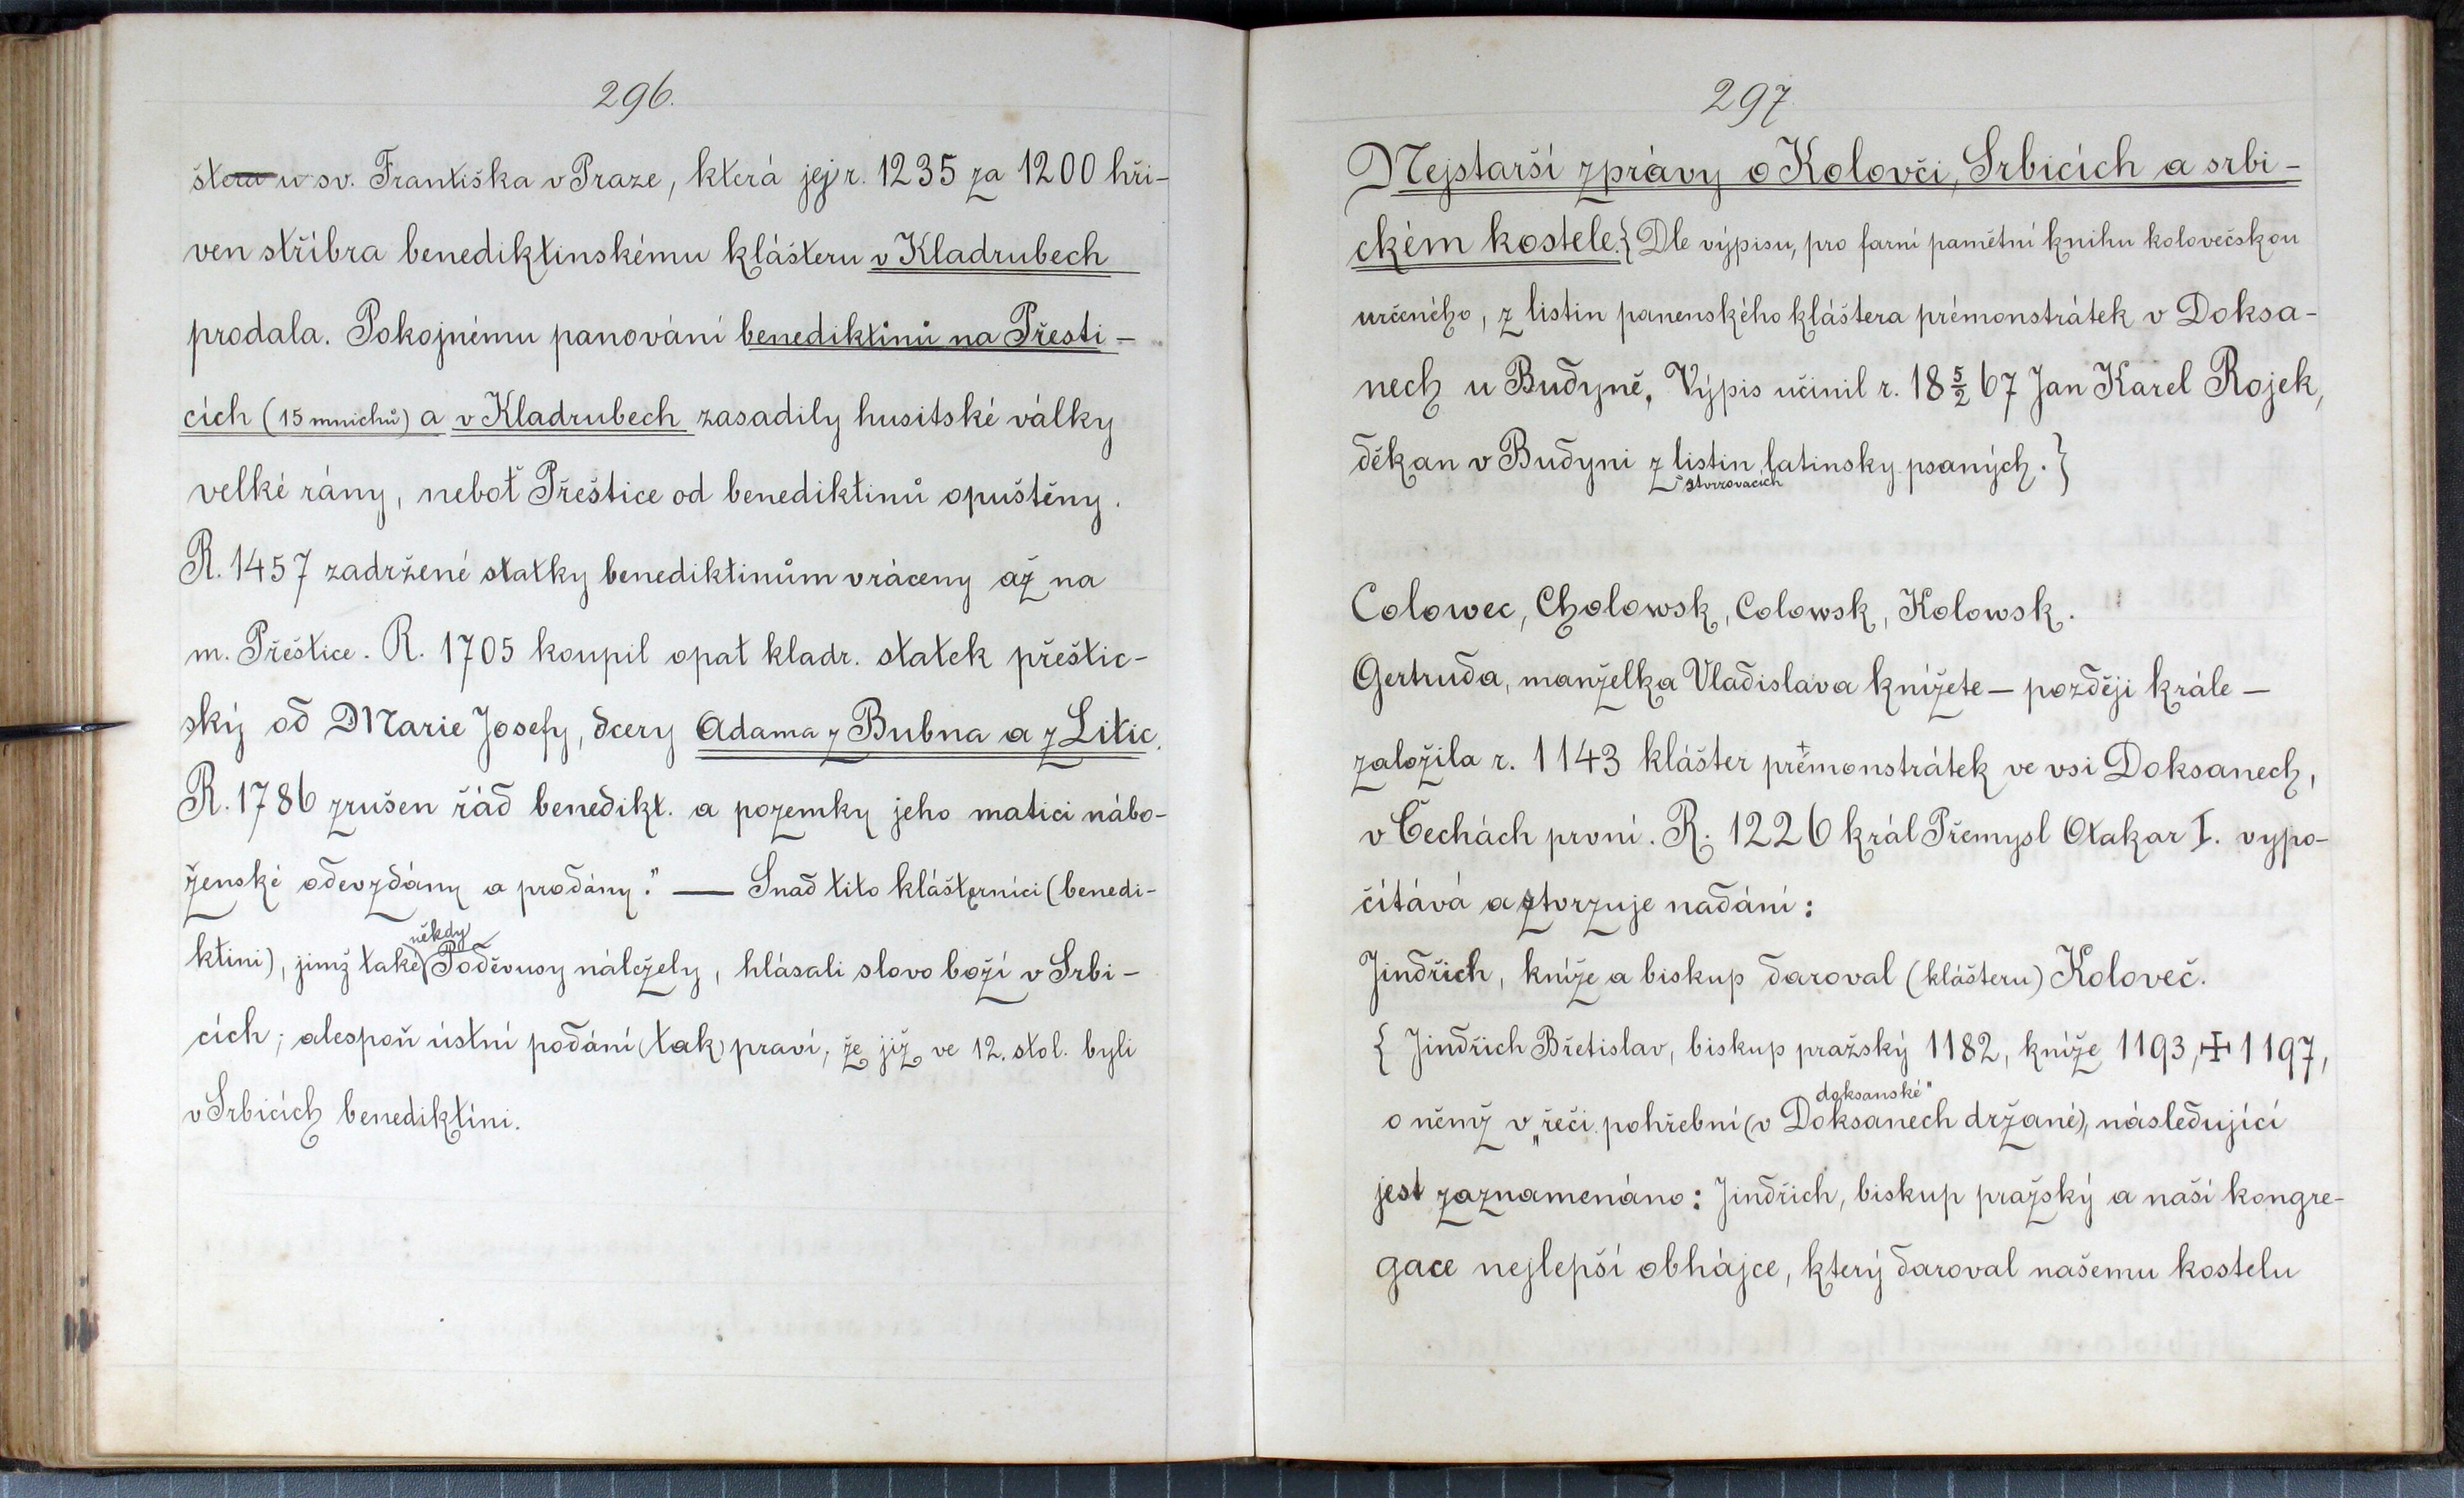 296.
štera u sv. Františka v Praze, která jej r. 1235 za 1200 hři-
ven stříbra benediktinskému klášteru v Kladrubech
prodala. Pokojnému panování benediktinů na Přešti-
cích (15 mnichů) a v Kladrubech zasadily husitské války
velké rány, neboť Přeštice od benediktinů opuštěny.
R. 1457 zadržené statky benediktinům vráceny až na
m. Přeštice. R. 1705 koupil opat kladr. statek přeštic-
ský od Marie Josefy, dcery Adama z Bubna a z Litic.
R. 1786 zrušen řád benedikt. a pozemky jeho matici nábo-
ženské odevzdány a prodány." — Snad tito klášterníci (benedi-
někdy
ktini), jimž také Poděvusy náležely, hlásali slovo boží v Srbi-
cích; alespoň ústní podání (tak) praví, že již ve 12. stol. byli
v Srbicích benediktíni.
297
Nejstarší zprávy o Kolovči, Srbicích a srbi-
ckém kostele. {Dle výpisu, pro farní pamětní knihu kolovečskou
určeného, z listin panenského kláštera prémonstrátek v Doksa-
nech u Budyně. Výpis učinil r. 18 5/2 67 Jan Karel Rojek,
děkan v Budyni z listin latinsky psaných.}
stvrzovacích
Colowec, Cholowsk, Colowsk, Kolowsk.
Gertruda, manželka Vladislava knížete — později krále —
založila r. 1143 klášter premonstrátek ve vsi Doksanech,
v Čechách první. R. 1226 král Přemysl Otakar I. vypo-
čítává a ztvrzuje nadání:
Jindřich, kníže a biskup daroval (klášteru) Koloveč.
{ Jindřich Břetislav, biskup pražský 1182, kníže 1193, ✠ 1197,
doksanské"
o němž v „řeči pohřební (v Doksanech držané), následující
jest zaznamenáno: Jindřich, biskup pražský a naší kongre-
gace nejlepší obhájce, který daroval našemu kostelu